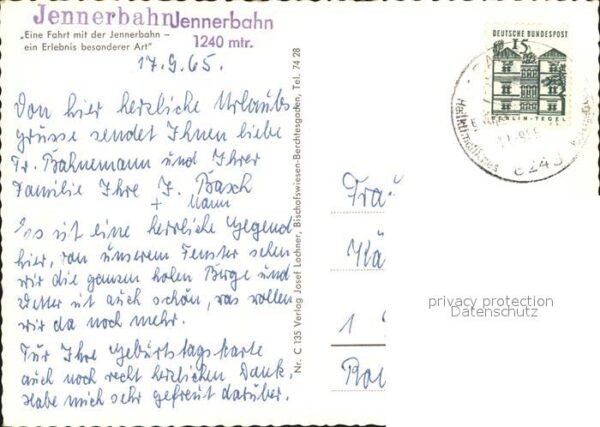 Jennerbahn
Jennerbahn
1240 mtr.
„Eine Fahrt mit der Jennerbahn –
ein Erlebnis besonderer Art"
17.9.65.
Von hier herzliche Urlaubs
grüsse sendet Ihnen liebe
Fr. Bahnemann und Ihrer
Familie Ihre J. Basch
+ Mann
Es ist eine herrliche Gegend
hier, von unserem Fenster sehen
wir die ganzen hohen Berge und
Wetter ist auch schön, was wollen
wir da noch mehr.
Für Ihre Geburtstagskarte
auch noch recht herzlichen Dank,
habe mich sehr gefreut darüber.
Nr. C 135 Verlag Josef Lochner, Bischofswiesen-Berchtesgaden, Tel. 74 28
DEUTSCHE BUNDESPOST
15
BERLIN-TEGEL
Heilklimatischer
8243
1
privacy protection
Datenschutz